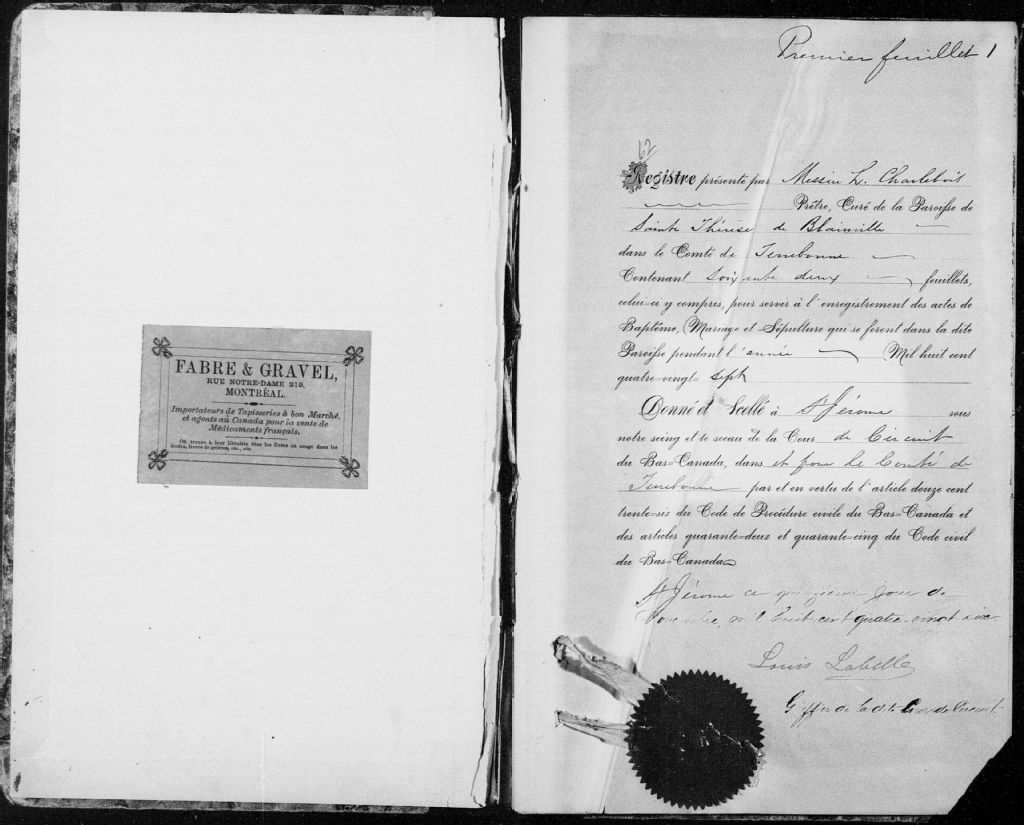 FABRE & GRAVEL,
RUE NOTRE-DAME 219,
MONTRÉAL.
Importateurs de Tapisseries à bon Marché,
et agents au Canada pour la vente de
Médicaments français.
On trouve à leur librairie tous les livres en usage dans les
écoles, livres de prières, etc., etc.
Premier feuillet 1
62
Registre présenté par Messire L. Charlebois
Prêtre, Curé de la Paroisse de
Sainte Thérèse de Blainville
dans le Comté de Terrebonne
Contenant Soixante deux feuillets,
celui-ci y compris, pour servir à l'enregistrement des actes de
Baptême, Mariage et Sépulture qui se feront dans la dite
Paroisse pendant l'année Mil huit cent
quatre-vingt sept
Donné et Scellé à St Jérome sous
notre seing et le sceau de la Cour de Circuit
du Bas-Canada, dans et pour le Comté de
Terrebonne par et en vertu de l'article douze cent
trente-six du Code de Procédure civile du Bas-Canada et
des articles quarante-deux et quarante-cinq du Code civil
du Bas-Canada
St Jérome ce quinzieme jour de
Novembre, mil huit cent quatre-vingt six.
Louis Labelle
Greffier de la dite Cour de Circuit.